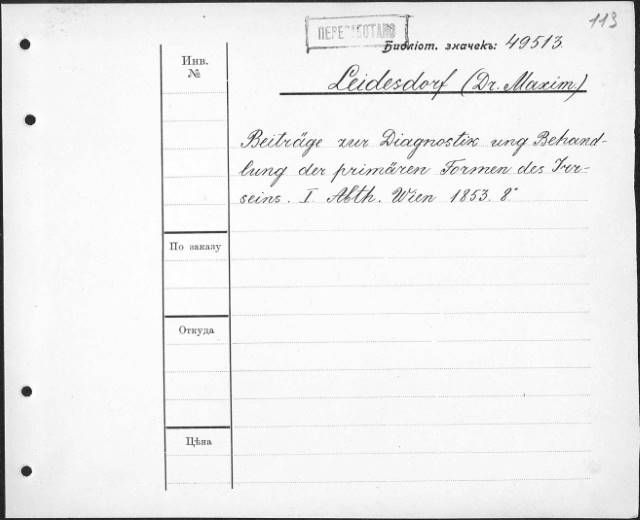 113
ПЕРЕРАБОТАНО
Библіот. значекъ: 49513.
Инв.
№
Leidesdorf (Dr. Maxim.)
Beiträge zur Diagnostik ung Behand-
lung der primären Formen des Irr-
seins. I Abth. Wien 1853. 8°
По заказу
Откуда
Цѣна